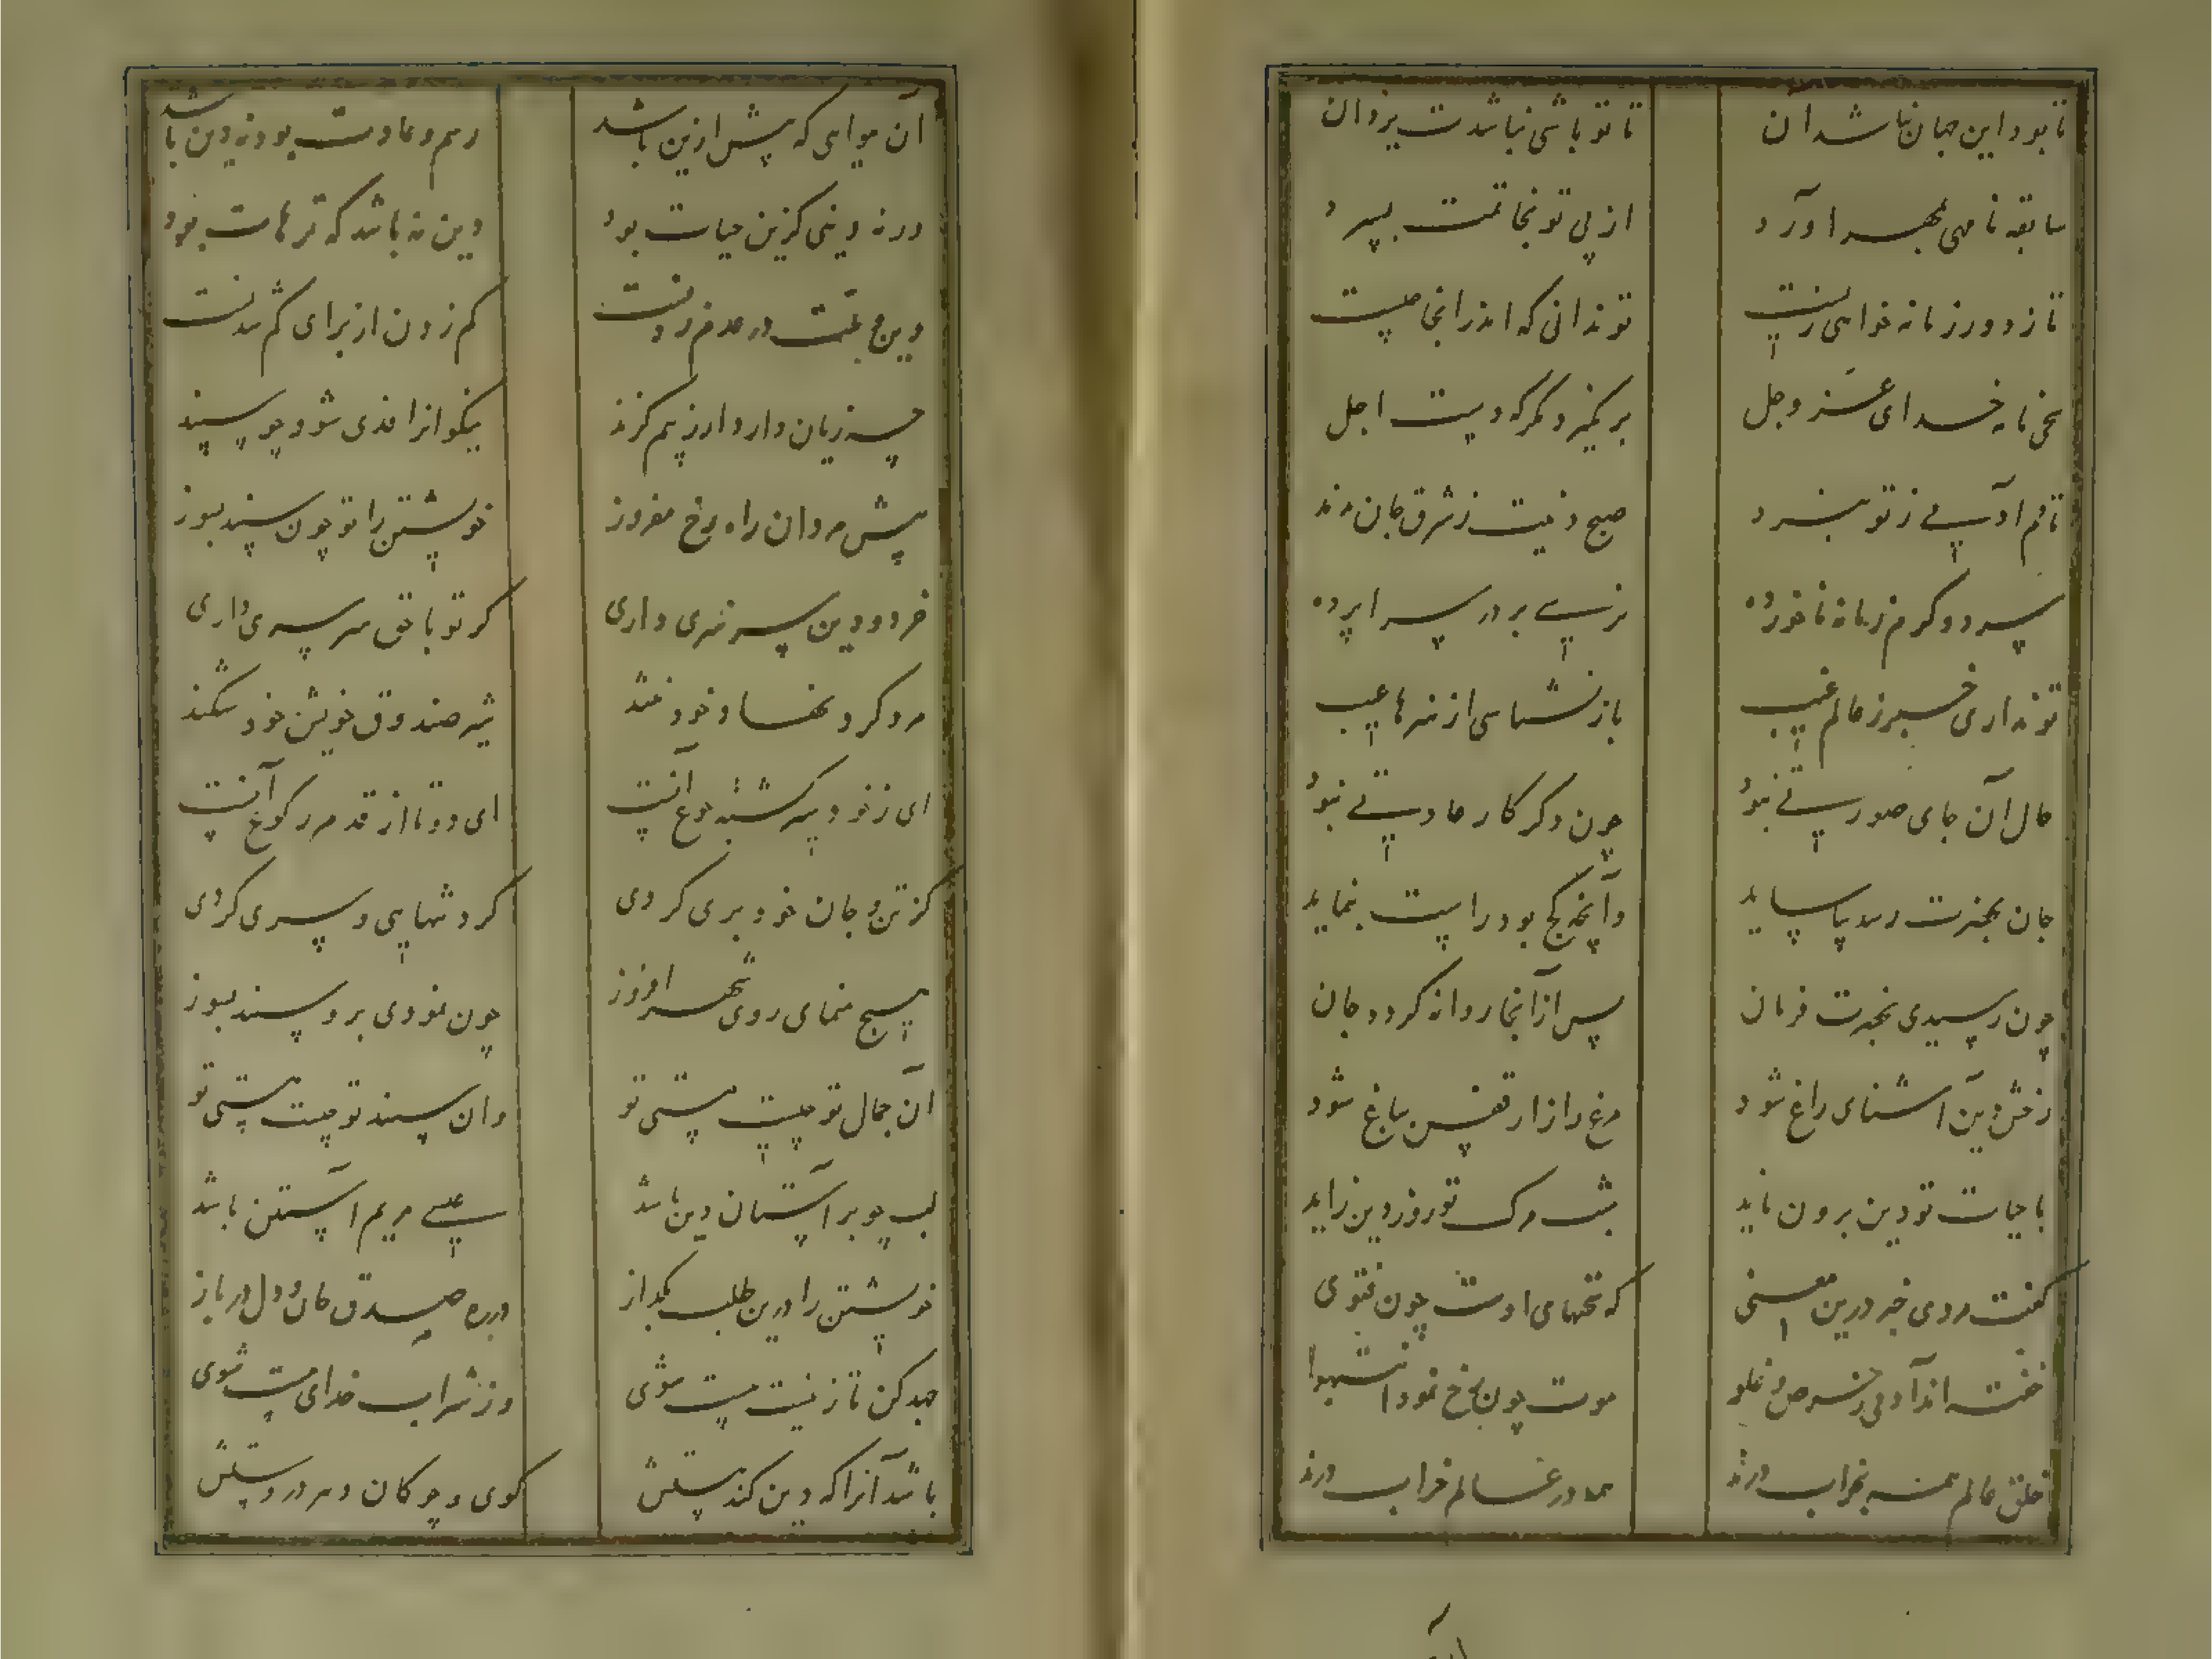 تا بود این جهان نباشد آن تا تو باشی نباشدت یزدان
سابقه نامهی بهر آورد از پی تو بخاتمت بسپرد
تا ز دور زمانه خواهی زیست تو ندانی که اندر آنجا چیست
نامه خدای عز و جل بر نگیرد مگر که دست اجل
تا دم آدمی ز تو نرمد صبح دینت ز شرق جان ندمد
سرد و گرم زمانه ناخورده نرسی بر در سراپرده
تو نداری خبر ز عالم غیب باز نشناسی از هنرها عیب
حال آن جای صورتی نبود چون دگر کار عادتی نبود
جان بحضرت رسد بیاساید وآنچه کج بود راست بنماید
چون رسیدی بحضرت فرمان پس از آنجا روانه گردد جان
رخش دین آشنای راغ شود مرغ وار از قفس بباغ شود
با حیات تو دین برون ناید شب مرگ تو روز دین زاید
گفت مردی خبر درین معنی که سخنهای اوست چون فتوی
خفته‌اند آدمی ز حرص و غلو موت چون رخ نمود انتبهوا
خلق عالم همه بخواب درند همه در عالم خراب درند
آن هوایی که پیش ازین باشد رسم و عادت بود نه دین باشد
ورنه دینی کزین حیات بود دین نه باشد که ترهات بود
دین و در عدم زدنست کم زدن از برای کم شدنست
چه زیان دارد ار ز بیم گزند نیکوانرا فدی شود چو سپند
پیش مردان راه رخ مفروز خویشتن را تو چون سپند بسوز
خرد و دین سرسری داری گر تو با حق سر سری داری
مرد گرد نهاد خود نتند شیر صندوق خویش خود شکند
ای ز خود سیر گشته جوع آنست ای دوتا از قدم رکوع آنست
گر تن و جان خود بری کردی گرد شاهی و سری گردی
هیچ منمای روی شهرافروز چون نمودی برو سپند بسوز
آن جمال تو چیست مستی تو وان سپند تو چیست هستی تو
لب چو بر آستان دین باشد عیسی مریم آستین باشد
خویشتن را درین طلب بگداز در ره صدق جان و دل در باز
جهد کن تا ز نیست هست شوی وز شراب خدای مست شوی
باشد آنرا که دین کند هستش گوی و چوگان دهر در دستش